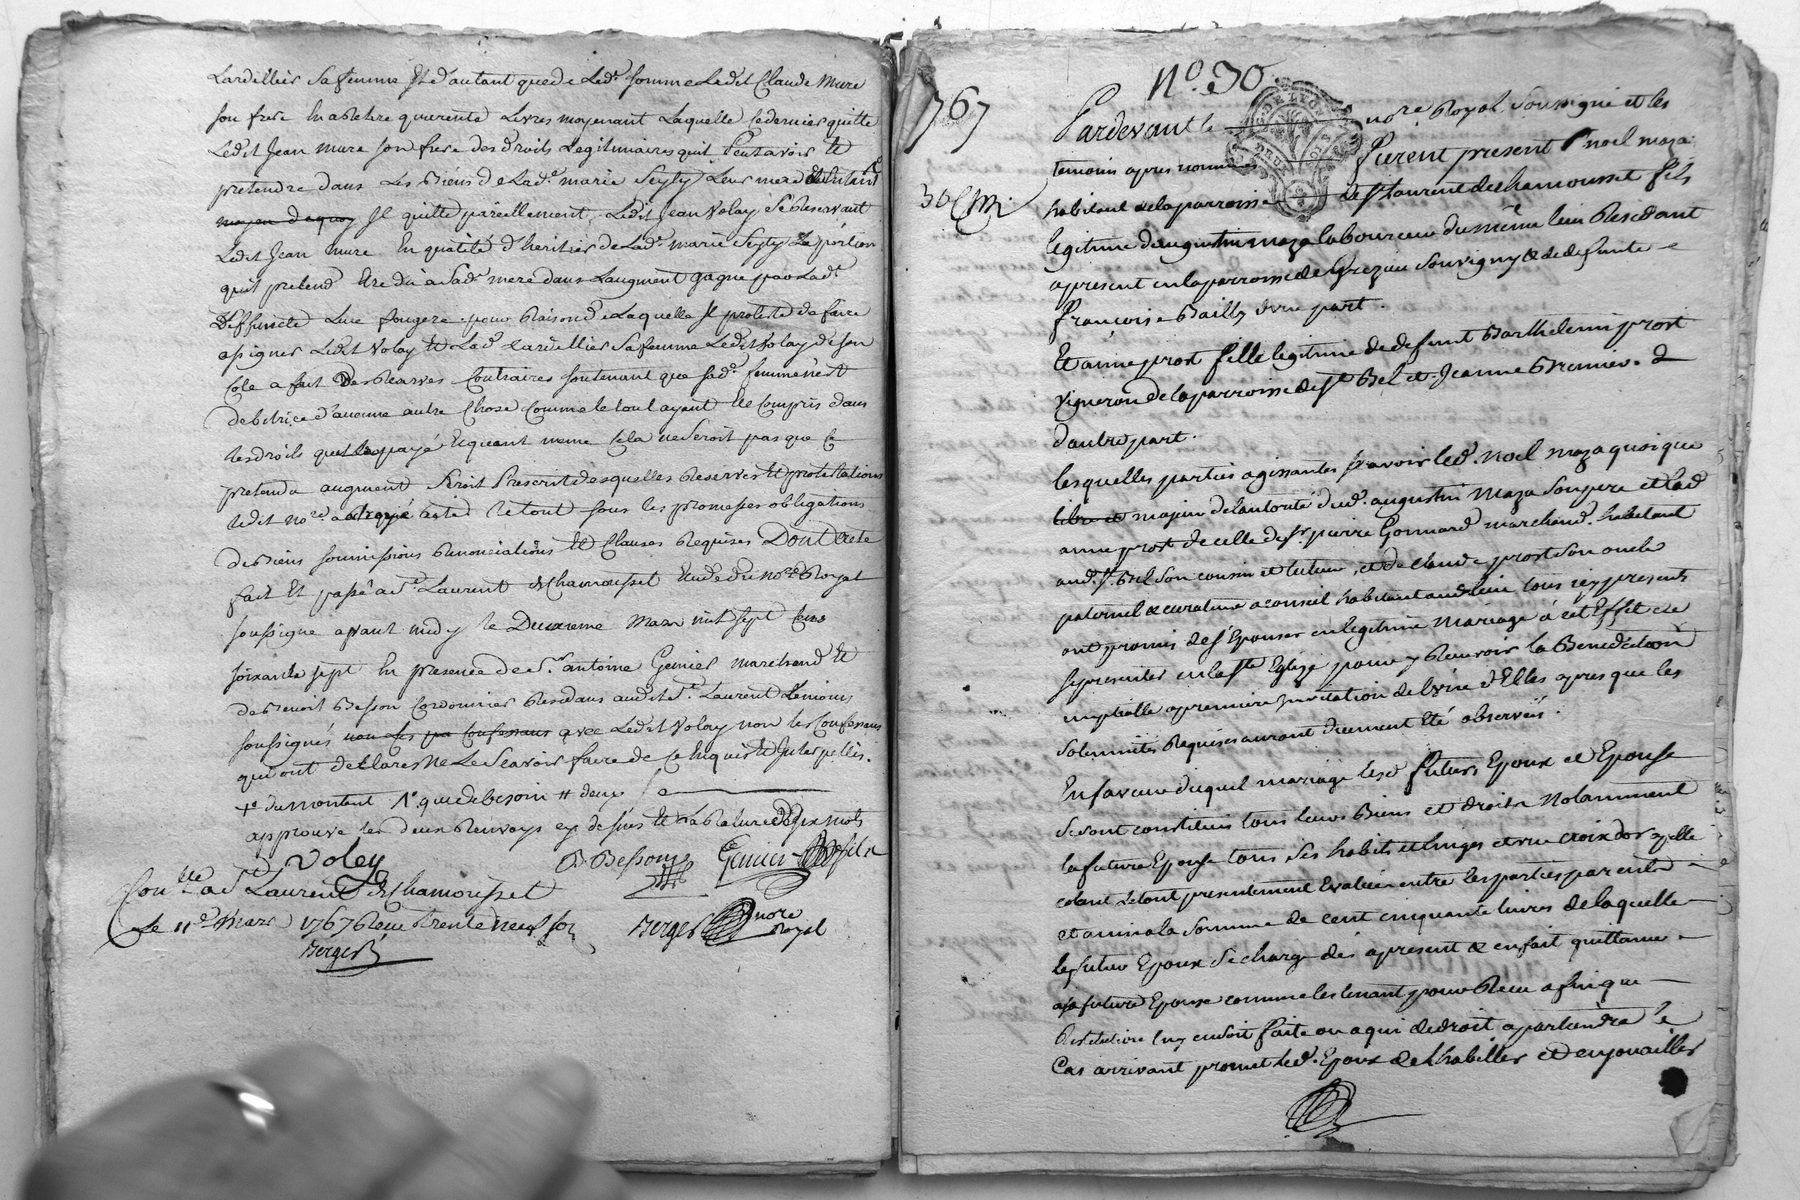 Lardellier sa femme Et d'autant que de Led.e somme Ledit Claude Mure
son frere En a Retire quarente Livres moyenant Laquelle Ce dernier quitte
Ledit Jean mure son frere des droits Legitimaires quil Peut avoir Et
pretendre dans Les Biens de Lad.e marie Seyty Leur mere
moyen de quoy Il quitte pareillement Ledit Jean Volay Se Reservant
Ledit Jean mure En qualité d'heritier de Lad.e marie Seyty La portion
quil pretend Etre dû a Sad.e mere dans Laugment gagné par Lad.e
Deffuncte Luce fougere pour Raison de Laquelle Il proteste de faire
assigner Ledit Volay Et Lad.e Lardellier Sa femme Ledit Volay de son
Coté a fait Des Reserves Contraires soutenant que sad.e femme n'est
debitrice d'aucune autre Chose Comme le tout ayant Eté Compris dans
les droits quil a payé Et quant meme Cela ne Seroit pas que Ce
pretendu augment Seroit Prescrit desquelles Reserves Et protestations
ledit no.re a octroyé acte Le tout sous les promesses obligations
de Biens soumissions Renonciations Et Clauses Requises Dont acte
fait Et passé a S.t Laurent de Chamousset Etude du no.re Royal
soussigne avant midy le Deuxieme Mars mil sept Cens
soixante sept En presence de S.r antoine Genier marchand Et
de Benoit Besson Cordonnier Residans aud.it S.t Laurent temoins
soussignés non les pa Confessans avec Ledit Volay non les Confessans
qui ont declares Ne Le Scavoir faire de Ce Enquis Et Interpellés.
+e du montant 1.e que de besoin # deux
approuvé les deux Renvoys cy dessus Et La Rature de six mots
Voley B. Besson Genier fils
Con.lle a S.t Laurent de Chamousset
Le 11.e Mars 1767 Reçu trente neuf sols
Berger Berger nore Royal
N.o 30.
1767
Pardevant le no.re Royal Soussigné et les
temoins apres nommés furent present noel maza
habitant de la parroisse de St Laurent de chamousset fils
legitime d'augustin maza laboureur du même lieu Residant
apresent en la parroisse de Grezieu Souvigny & de defunte
francoise Bailly d'vne part.
Et anne prost fille legitime de defunt Barthelemi prost
vigneron de la parroisse de st Bel et Jeanne Bremier. d
d'autre part.
lesquelles parties agissantes scavoir led. noel maza quoique
libre et majeur de l'autorité dud. augustin Maza Son pere et lad
anne prost de celle de sr. pierre Gonnard marchand. habitant
aud. st. Bel son cousin et tuteur, et de claude prost son oncle
paternel & curateur a conseil habitant aud. lieu tous icy presents
ont promis de s'Epouser en legitime Mariage à cet Effet de
se presenter en la ste Eglize pour y Recevoir la Benediction
nuptialle a premiere Invitation de l'vne d'Elles apres que les
solemnités Requises auront düement Eté observées.
En faveur duquel mariage lesd. futurs Epoux et Epouse
se sont constitués tous leurs Biens et droits Notamment
la future Epouse tous ses habits et linges et vne croix d'or y elle
colant le tout presentement Evalüée entre les parties par ensd
et amiala Somme de cent cinquante livres de laquelle
le futur Epoux se charge dés apresent & en fait quittance
a sa future Epouse comme les tenant pour Recu a fin que
Restitution luy en soit faite ou a qui de droit apartiendra le
Cas arrivant promet led. Epoux de l'habiller et enjouailler